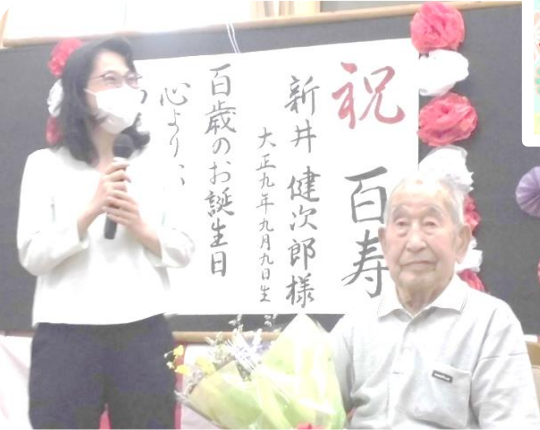 祝 百寿
新井 健次郎様
大正九年九月九日生
百歳のお誕生日
心より